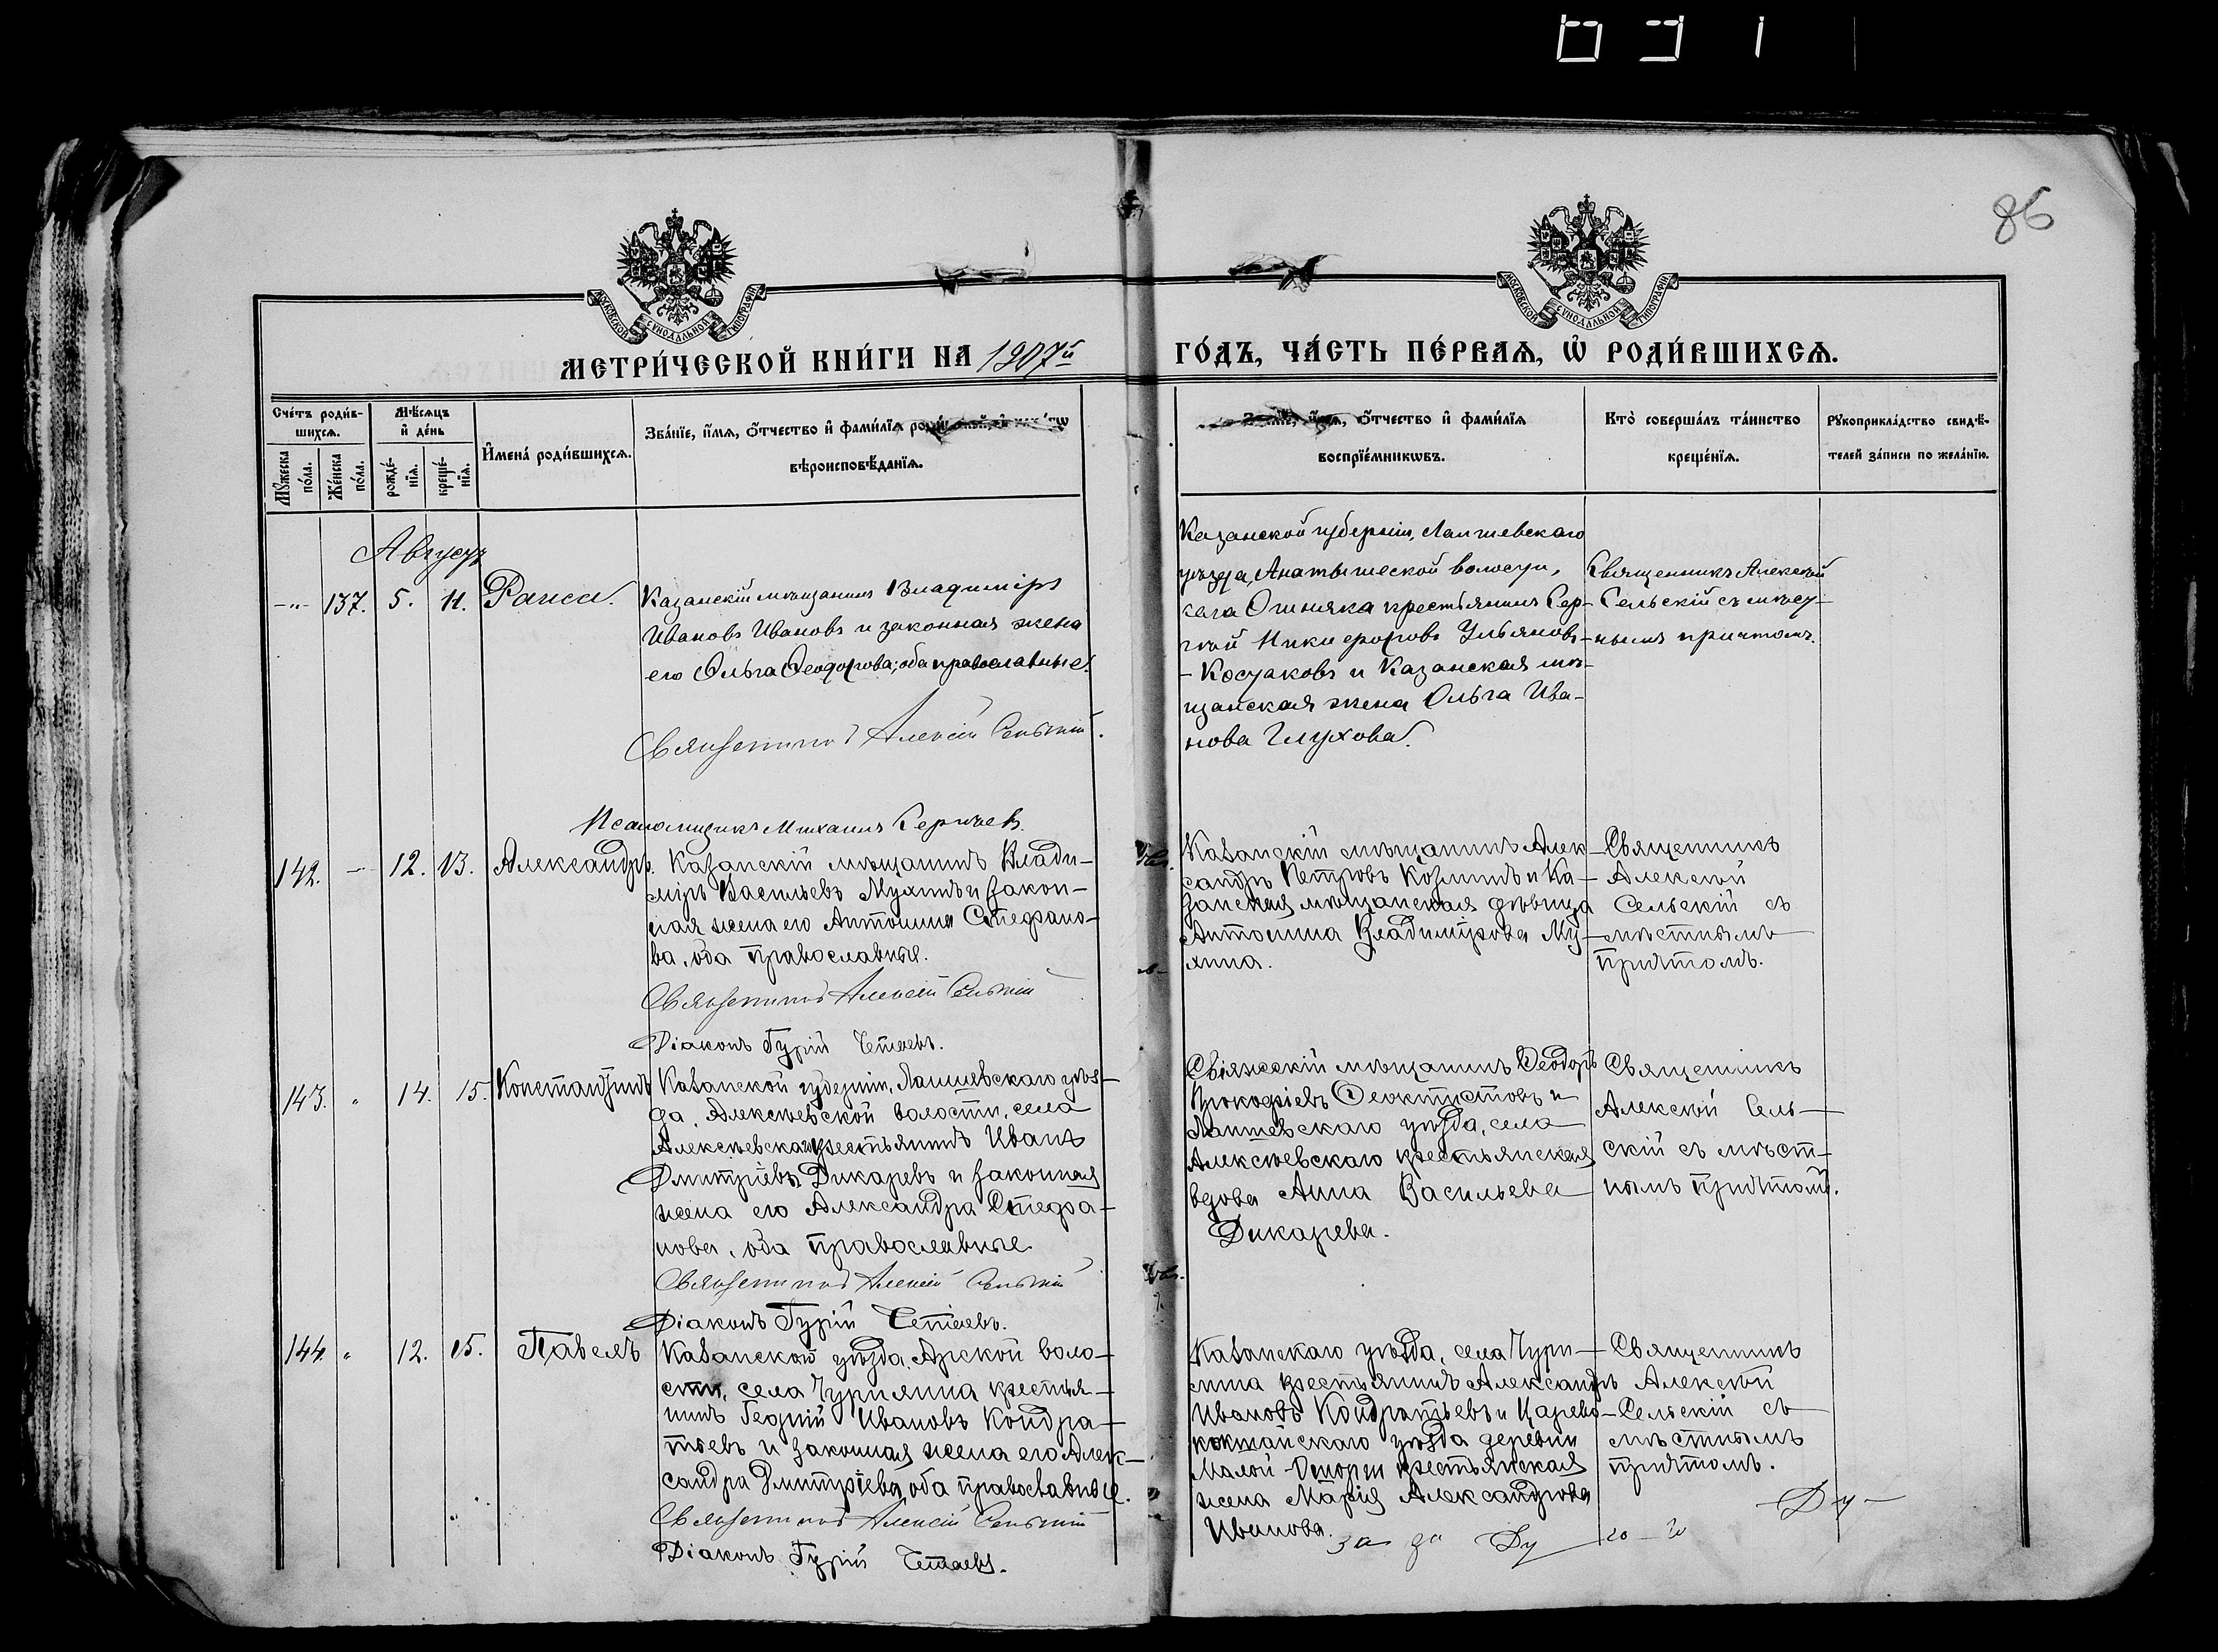 86
МОСКОВСКОЙ СѴНОДАЛЬНОЙ ТИПОГРАФІИ
МОСКОВСКОЙ СѴНОДАЛЬНОЙ ТИПОГРАФІИ
МЕТРИ́ЧЕСКОЙ КНИ́ГИ НА 1907й
ГО́ДЪ, ЧА́СТЬ ПЕ́РВАѦ, Ѡ҆ РОДИ́ВШИХСѦ.
Сче́тъ роди́в-
шихсѧ.
Мꙋ́жеска по́ла.
Же́нска по́ла.
Мѣ́сѧцъ
и҆ де́нь
рожде́-
нїѧ.
креще́-
нїѧ.
И҆мена̀ роди́вшихсѧ.
Зва́нїе, и҆́мѧ, ѻ҆́тчество и҆ фами́лїѧ
вѣроисповѣ́данїѧ.
ѻ҆́тчество и҆ фами́лїѧ
воспрїе́мникѡвъ.
Кто̀ соверша́лъ та́инство
креще́нїѧ.
Рꙋкоприкла́дство свидѣ́-
телей за́писи по жела́нїю.
Августъ
-"- 137. 5. 11. Раиса.
Казанскій мѣщанинъ Владиміръ
Ивановъ Ивановъ и законная жена
его Ольга Ѳеодорова; оба православные.
Священникъ Алексій Сельскій.
Псаломщикъ Михаилъ Сергѣевъ.
Казанской губерніи, Лаишевскаго
уѣзда, Анатышской волости,
села Ошняка крестьянинъ Сер-
гѣй Никифоровъ Ульяновъ-
-Костаковъ и Казанская мѣ-
щанская жена Ольга Ива-
нова Глухова.
Священникъ Алексѣй
Сельскій съ мѣст-
нымъ причтомъ.
142. - 12. 13. Александръ.
Казанскій мѣщанинъ Влади-
міръ Васильевъ Мухинъ и закон-
ная жена его Антонина Стефано-
ва, оба православные.
Священникъ Алексій Сельскій
Діаконъ Гурій
Казанскій мѣщанинъ Алек-
сандръ Петровъ Козминъ и Ка-
занская мѣщанская дѣвица
Антонина Владимірова Му-
Священникъ
Алексѣй
Сельскій съ
мѣстнымъ
причтомъ.
143. " 14. 15. Константинъ
Казанской губерніи, Лаишевскаго уѣз-
да, Алексѣевской волости, села
Алексѣевскаго крестьянинъ Иванъ
Дмитріевъ Дикаревъ и законная
жена его Александра Стефа-
нова, оба православные
Священникъ Алексій Сельскій
Діаконъ Гурій
Свіяжскій мѣщанинъ Ѳеодоръ
Прокофіевъ Ѳеоктистовъ и
Лаишевскаго уѣзда, села
Алексѣевскаго крестьянская
вдова Анна Васильева
Дикарева.
Священникъ
Алексѣй Сель-
скій съ мѣст-
нымъ причтомъ.
144. " 12. 15. Павелъ
Казанскаго уѣзда, Арской воло-
сти, села Чурилина крестья-
нинъ Георгій Ивановъ Кондра-
тьевъ и законная жена его Алек-
сандра Дмитріева, оба православные.
Священникъ Алексій Сельскій
Діаконъ Гурій
Казанскаго уѣзда, села Чури-
лина крестьянинъ Александръ
Ивановъ Кондратьевъ и Царево-
кокшайскаго уѣзда деревни
Малой крестьянская
жена Марія Александрова
Иванова.
Священникъ
Алексѣй
Сельскій съ
мѣстнымъ
причтомъ.